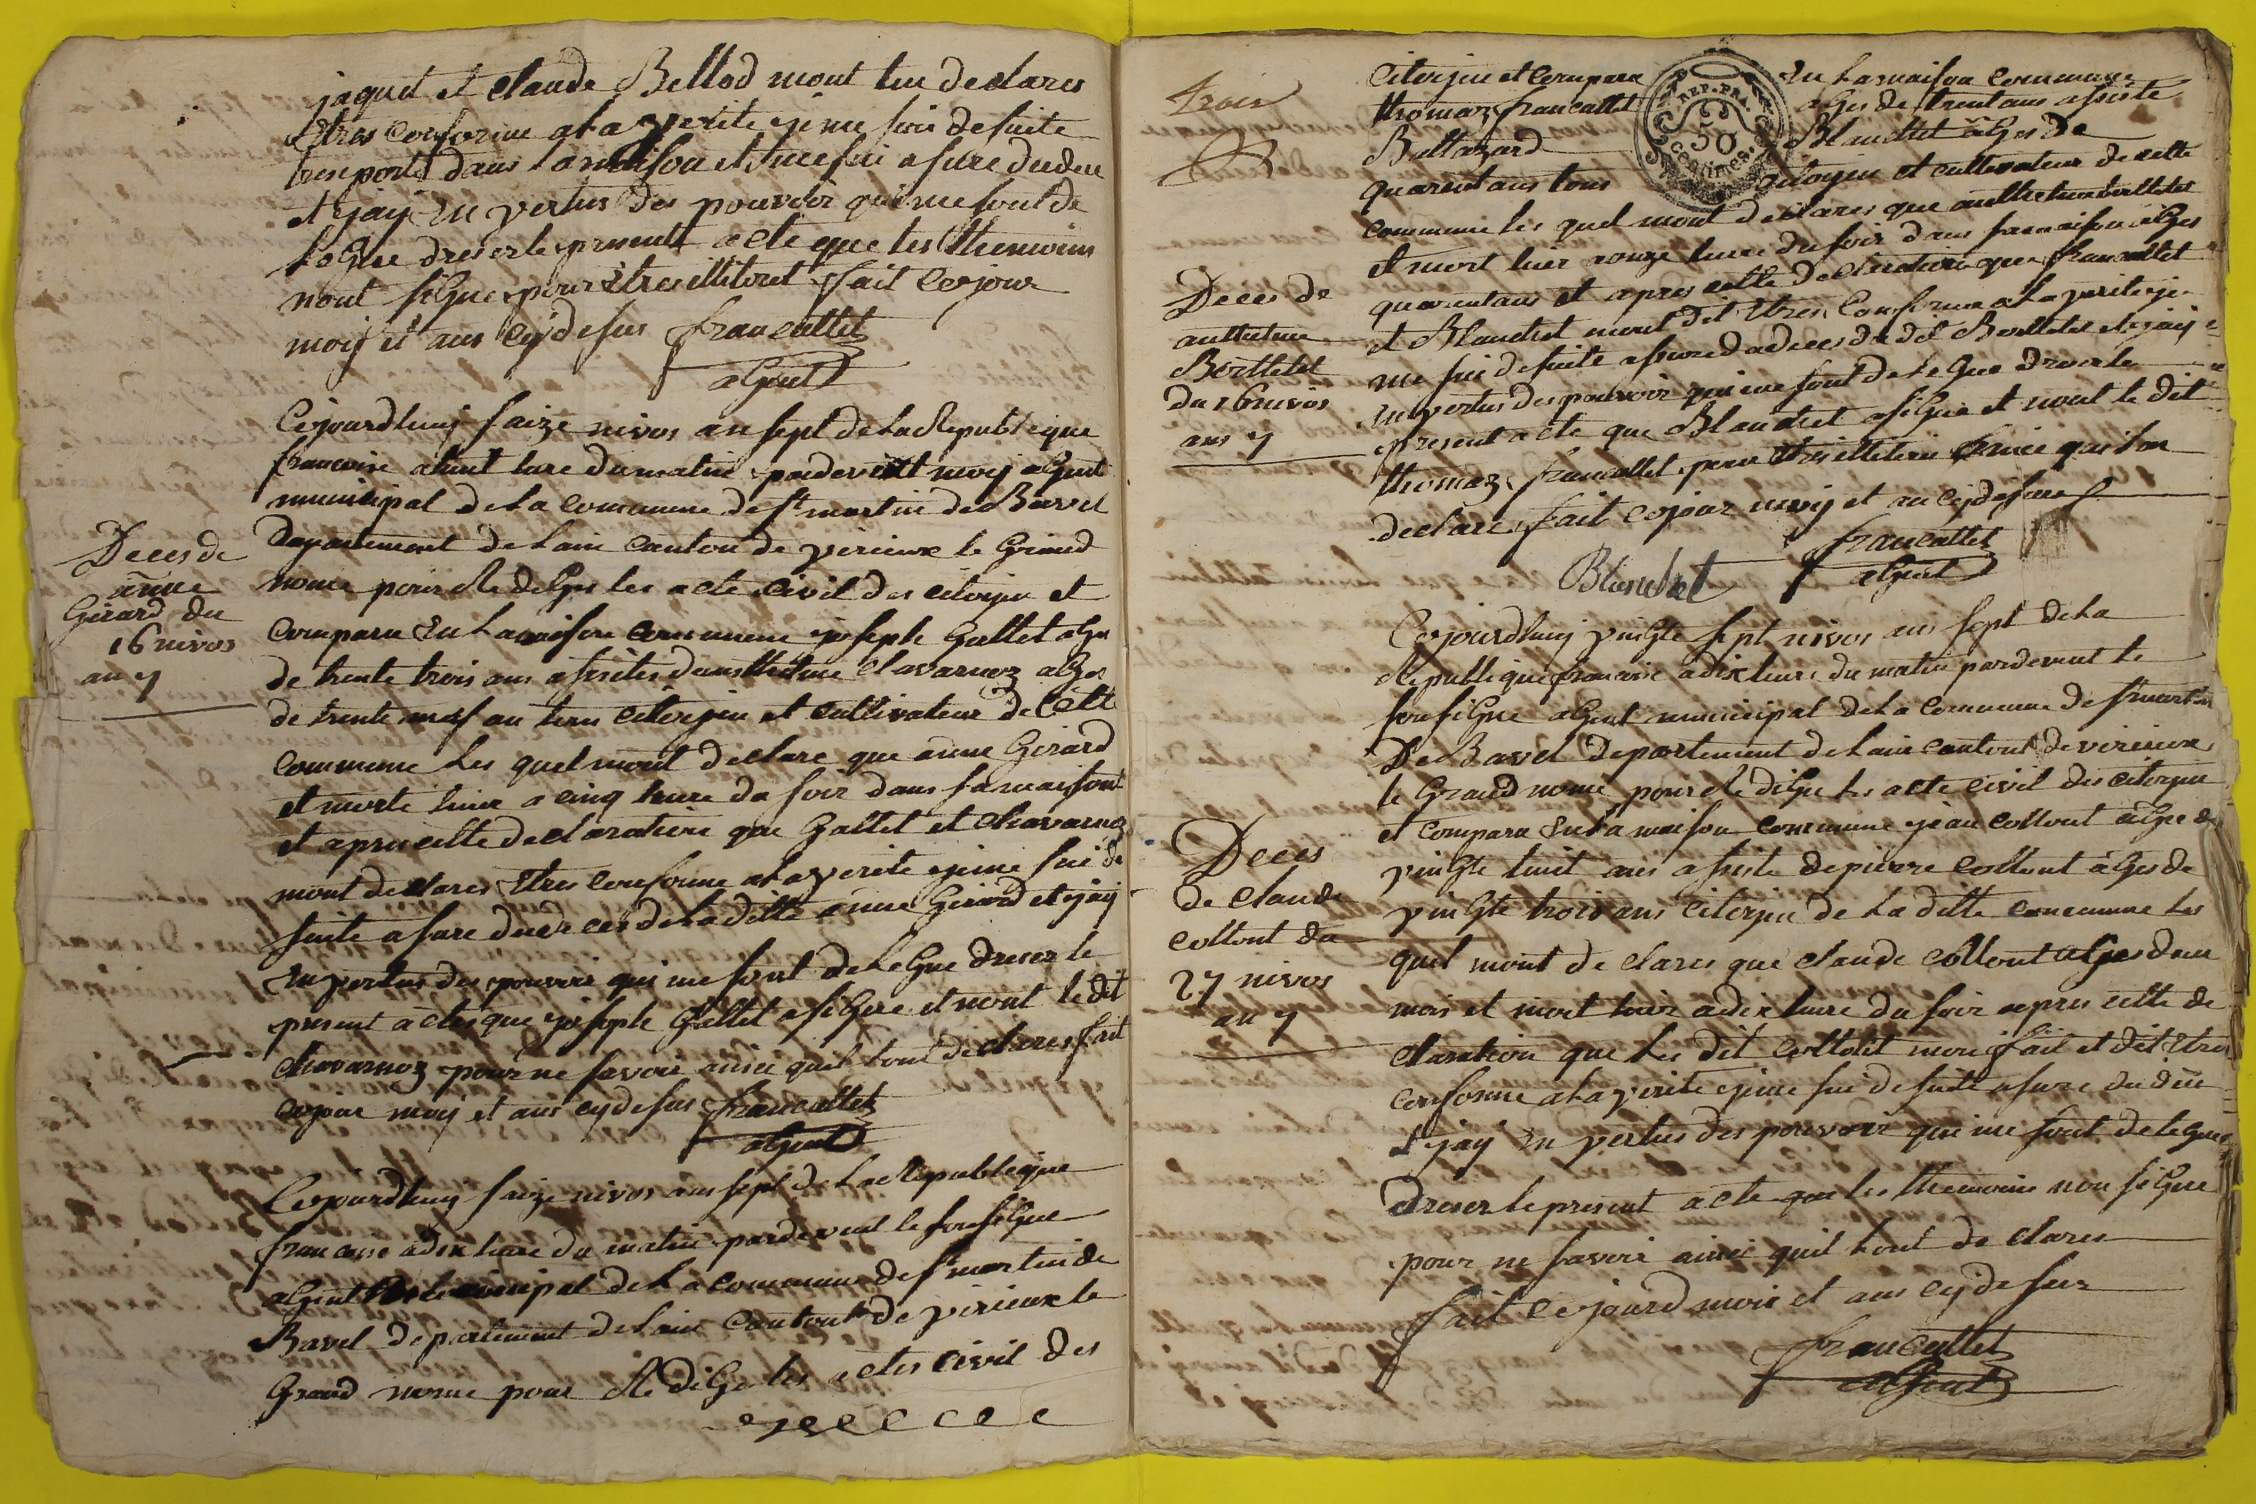 jaquet et claude Bellod mont tui declares
Etres conforme ala verite ejeme suis desuite
tresporté dans la maison et me sui asure dudeu
et jaij en vertus des pouvoir qui me sont de
legue dreserle present acte que les themoins
nont signe pour Etres illiteret fait cejour
moij et ans cij desus francallet
agent
Cejourdhuij saize nivos an sept de la Republique
francoise a huit hure du matin pardevant moij agent
municipal de la commune de st martin de Bavel
Departement de lain canton de virieux le Grand
nome pour Redigés les acte civil des citoyin et
comparu en la maison commune joseph Gallet agés
de trente trois ans asistes danthelme Chavarnoz ages
de trente neuf an tous citoyin et cultivateur de cette
commune les quel mont declare que anne Girard
et morte hier a cinq heure du soir dans sa maison
et apres cette declaration que Gallet et Chavarnoz
mont declares Etres conforme ala verite ejeme sui de
suite asure du deces de la ditte anne Girard et jaij
en vertus des pouvoir qui me sont delegue dreser le
present actes que joseph Gallet asigne et nont le dit
Chavarnoz pour ne savoir ainci quil lont declares fait
cejour moij et ans cij desus francallet
agent
Deces de
anne
Girard du
16 nivos
an 7
Cejourdhuij saize nivos ans sept de la Republique
francoise a dix hure du matin pardevent le sousigne
agent municipal de la commune de st martin de
Bavel departement de lain canton de virieux le
Grand nome pour Rediger les actes civil des
trois
citoyin et compara en la maison commune
thomaz francallet ages de trent ans asiste
Baltazard Blanchet âges de
quarent ans tous citoyin et cultivateur de cette
commune les quel mont declares que anthelme Berthelet
et mort hier aonze hure du soir dans sa maison ages
quarentans et apres cette declaration que francallet
et Blanchet mont dit Etres conforme a la verite eje
me sui desuite asure du deces du dit Berthelet et jaij
en vertus des pouvoir qui me sont delegue dreser le
present acte que Blanchet asigne et nont le dit
thomaz francallet pour Etres illiteré ainci quil lon
declare fait cejour moij et an cij desure
francallet
agent
Blanchet
REP. FRA.
50
centimes
Deces de
anthelme
Berthelet
du 16 nivos
ans 7
Cejourdhuij vingte sept nivos ans sept de la
Republique francoise a dix heure du matin pardevent le
sousigne agent municipal de la commune de st martin
De Bavel departement de lain cantont de virieux
le Grand nome pour Redigee les acte civil des citoyin
et compara en la maison commune jean Collont âges de
vingte huit ans asiste depierre Collont âges de
vingte trois ans citoyin de la ditte commune les
quel mont declares que claude Collont ages deux
mois et mort hier a dix hure du soir apres cette de
claration que les dit Collont mon fait et dit Etres
conforme a la verite ejeme sui desuite asure du deu
et jaij en vertus des pouvoir qui me sont delegue
dreser le present acte que les themoins non signe
pour ne savoir ainci quil lont declares
fait cejourd mois et ans cij desur
francallet
agent
Deces
de claude
collont du
27 nivos
an 7